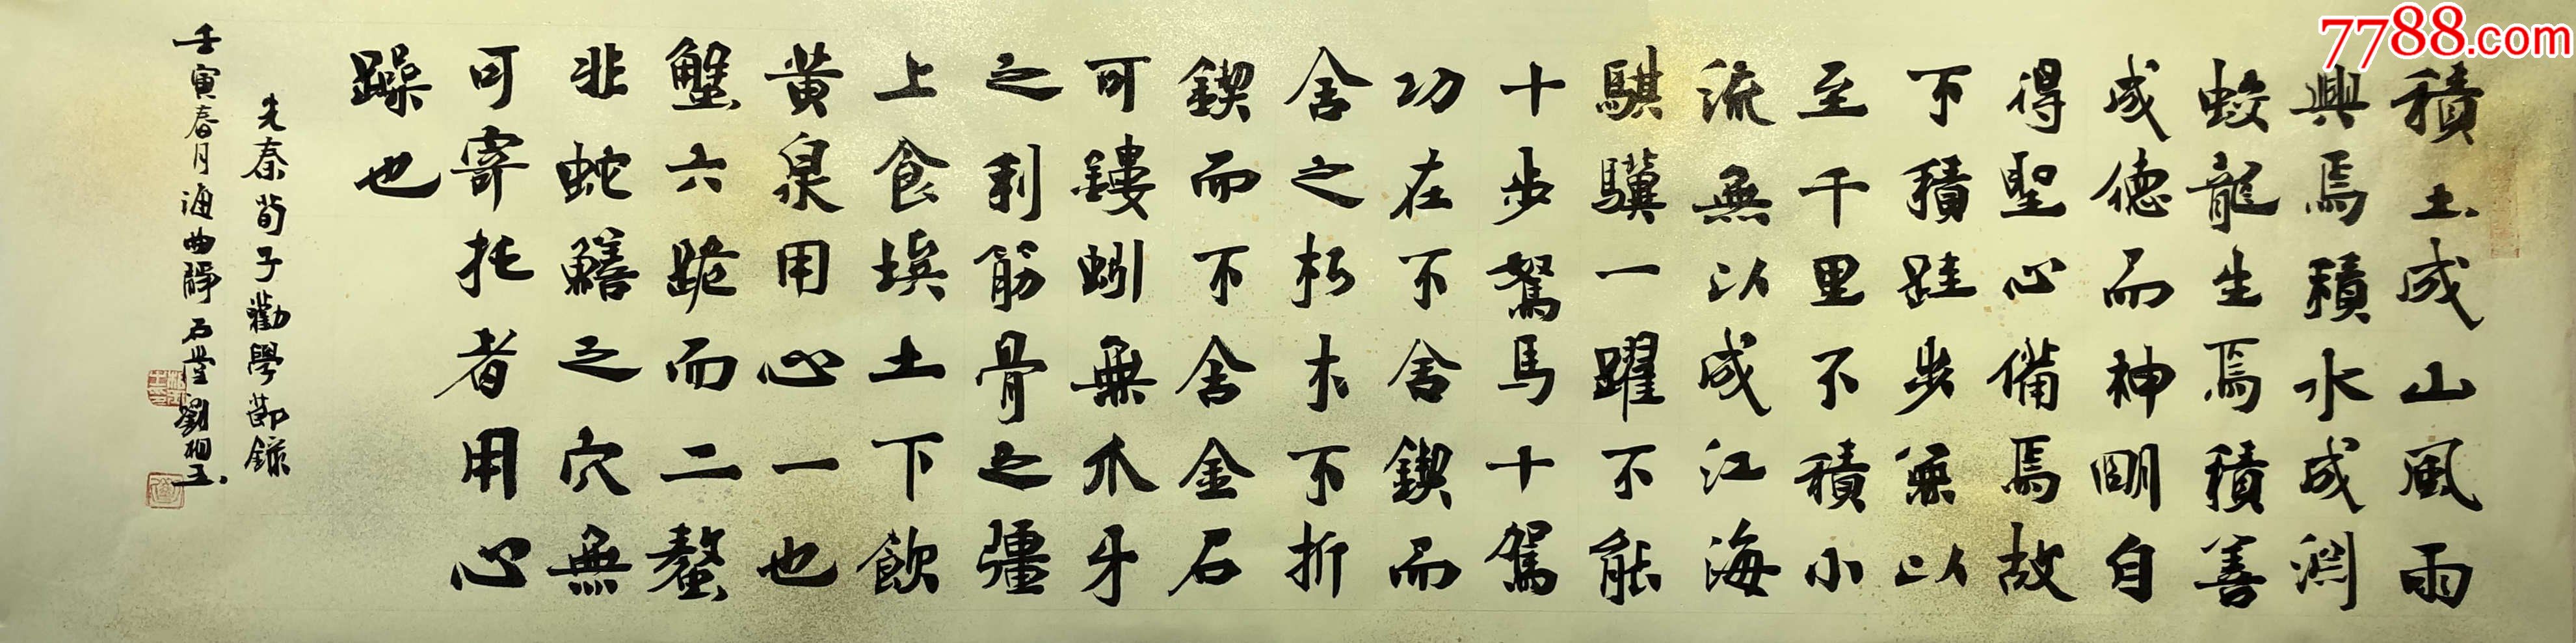 積土成山風雨
興焉積水成淵
蛟龍生焉積善
成德而神明自
得聖心備焉故
不積跬步無以
至千里不積小
流無以成江海
騏驥一躍不能
十步駑馬十駕
功在不舍鍥而
舍之朽木不折
鍥而不舍金石
可鏤蚓無爪牙
之利筋骨之彊
上食埃土下飲
黃泉用心一也
蟹六跪而二螯
非蛇鱔之穴無
可寄托者用心
躁也
先秦荀子勸學節錄
壬寅春月海曲靜石堂劉相玉
7788.com